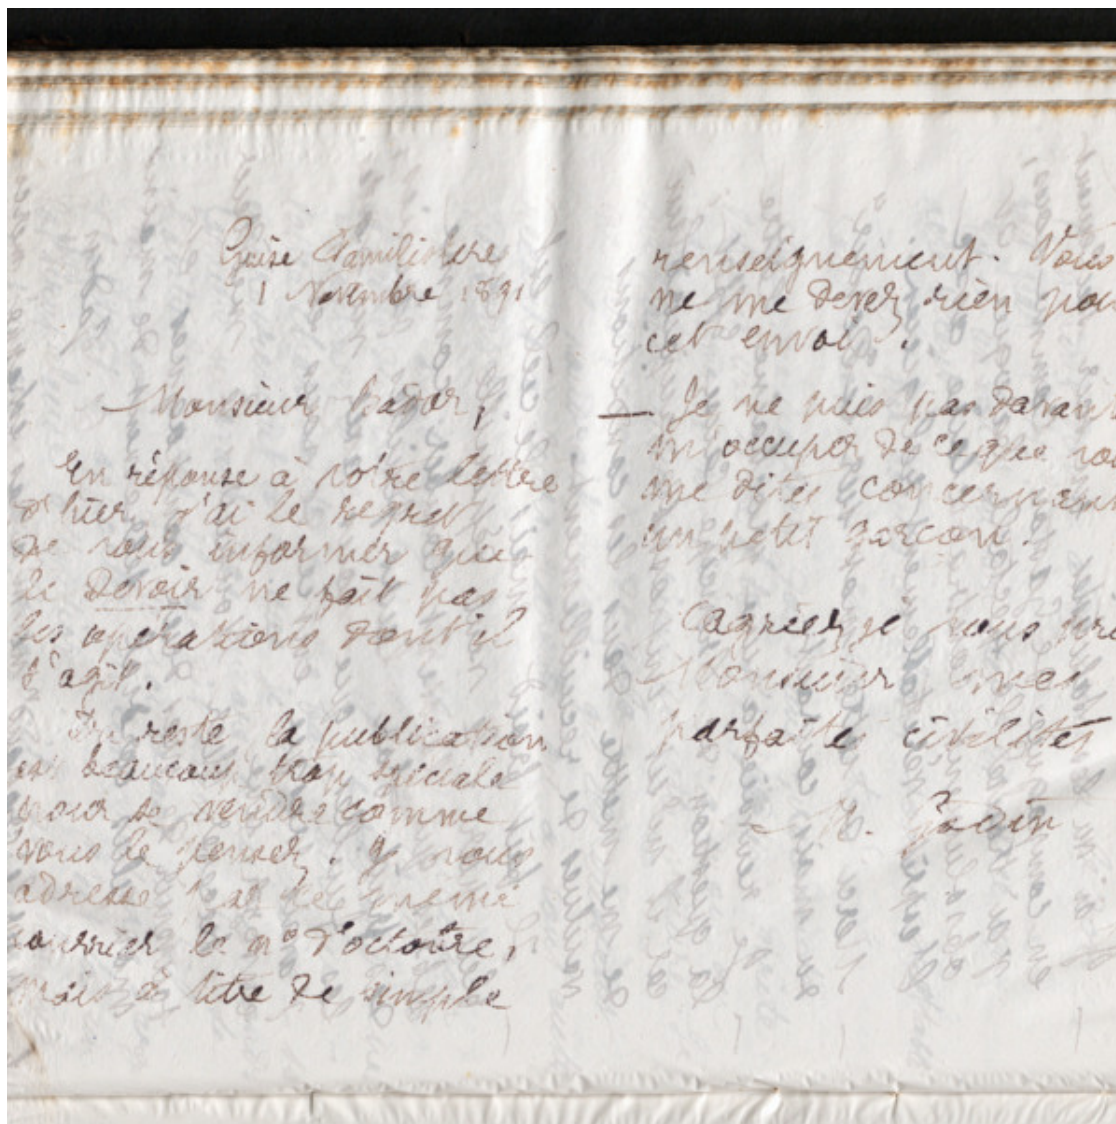 Guise Familistère
1 Novembre 1891
Monsieur Badar,
En réponse à votre lettre
d'hier j'ai le regret
de vous informer que
le Devoir ne fait pas
les opérations dont il
s'agit.
Du reste la publication
est beaucoup trop spéciale
pour se vendre comme
vous le pensez. Je vous
adresse par le même
courrier le nº d'octobre,
mais à titre de simple
renseignement. Vous
ne me devez rien pou
cet envoi.
— Je ne puis pas davan
m'occuper de ce que vou
me dites concernan
un petit garçon.
Agréez je vous pri
Monsieur mes
parfaites civilités
M. Godin